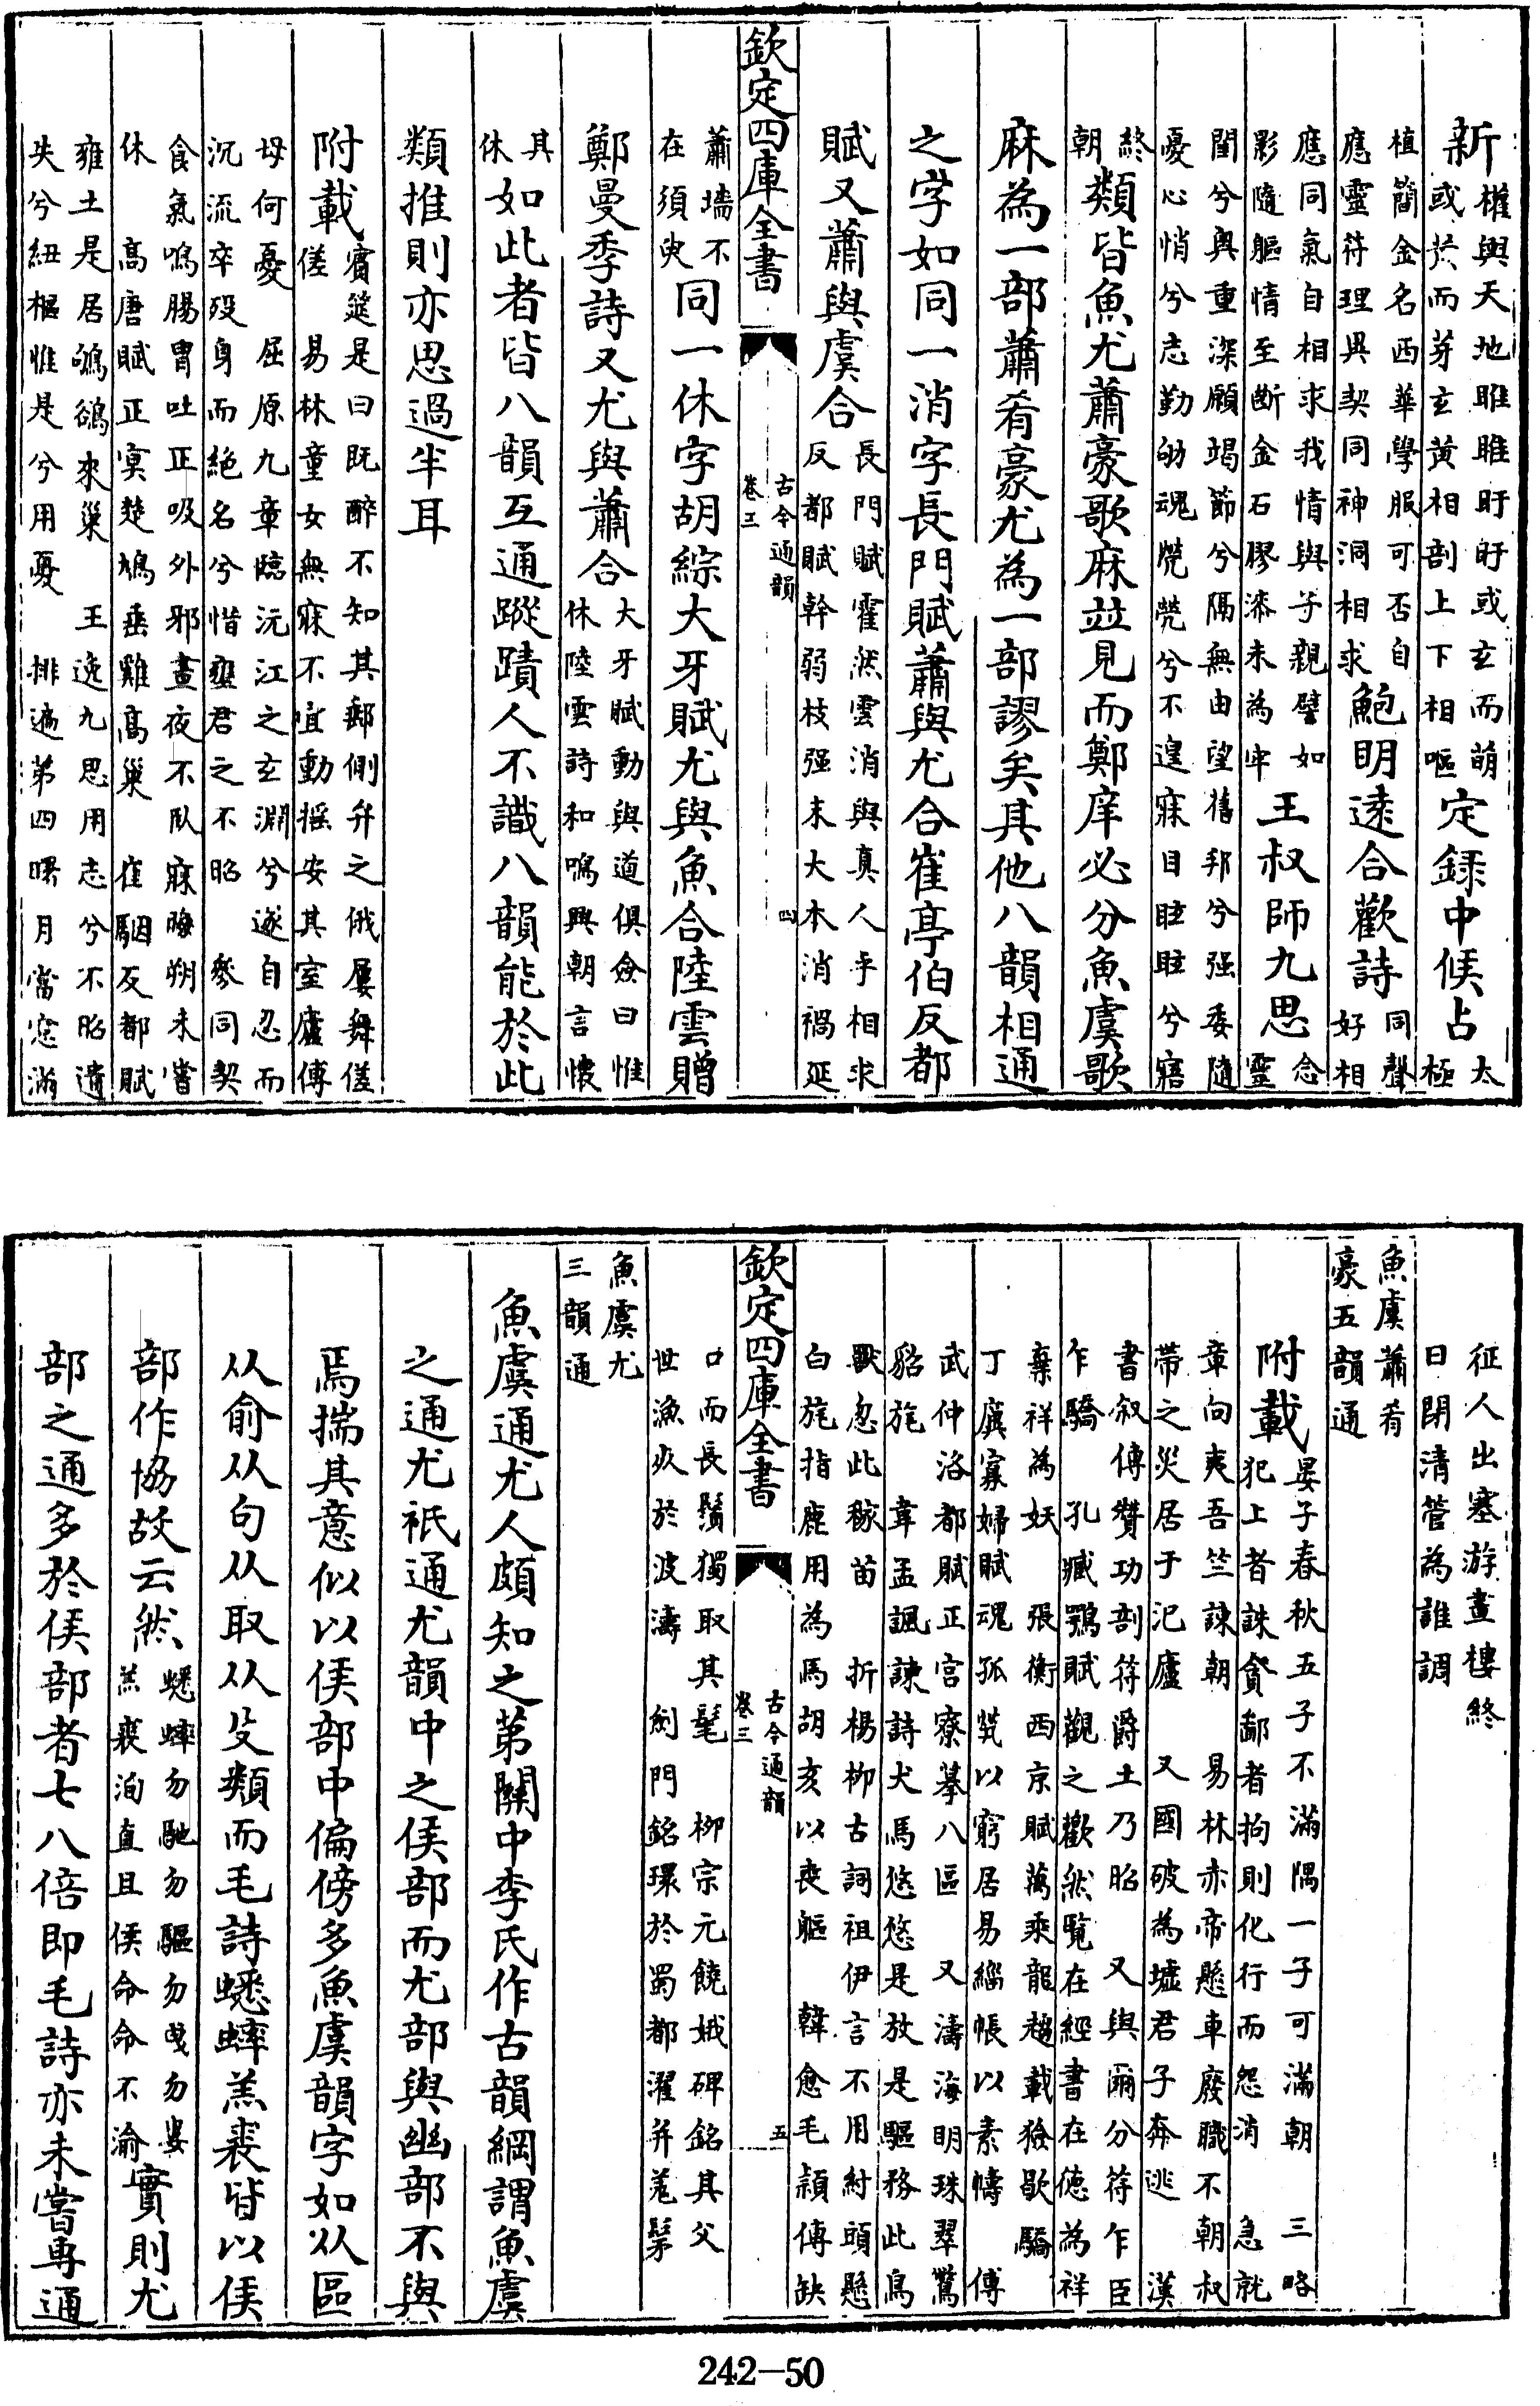 新權輿天地睢睢盱盱或玄而萌
或黃而芽玄黃相剖上下相嘔定録中候占太極
植簡金名西華學服可否自
應靈符理異契同神洞相求鮑明遠合歡詩同聲好相
應同氣自相求我情與子親譬如
影隨軀情至斷金石膠漆未為牢王叔師九思念靈
閨兮奥重深願竭節兮隔無由望舊邦兮強委隨
憂心悄兮志勤劬魂煢煢兮不遑寐目眽眽兮寤
終朝類皆魚尤蕭豪歌麻並見而鄭庠必分魚虞歌
麻為一部蕭肴豪尤為一部謬矣其他八韻相通
之字如同一消字長門賦蕭與尤合崔亭伯反都
賦又蕭與虞合長門賦霍然雲消與真人乎相求
反都賦幹弱枝强末大本消禍延
欽定四庫全書
古今通韻
卷三
四
蕭墻不
在須臾同一休字胡綜大牙賦尤與魚合陸雲贈
鄭曼季詩又尤與蕭合大牙賦動與道俱僉曰惟
休陸雲詩和鳴興朝言懷
其休如此者皆八韻互通蹤蹟人不識八韻能於此
類推則亦思過半耳
附載賓筵是曰既醉不知其郵側弁之俄屢舞傞
傞　易林童女無寐不宜動揺安其室廬傅
母何憂　屈原九章臨沅江之玄淵兮遂自忍而
沉流卒歿身而絶名兮惜壅君之不昭　參同契
食氣鳴腸胃吐正吸外邪晝夜不臥寐晦朔未嘗
休　高唐賦正冥楚鳩垂雞高巢　崔駰反都賦
雍土是居鴝鵒來巢　王逸九思用志兮不昭遺
失兮紐樞惟是兮用憂　排遍第四曙月當窓滿
征人出塞游畫樓終
日閉清管為誰調
魚虞蕭肴
豪五韻通
附載晏子春秋五子不滿隅一子可滿朝　三略
犯上者誅貪鄙者拘則化行而怨消　急就
章向夷吾竺諫朝　易林赤帝懸車廢職不朝叔
帶之災居于氾廬　又國破為墟君子奔逃　漢
書叙傳贊功剖符爵土乃昭　又與爾分苻乍臣
乍驕　孔臧鴞賦觀之歡然覧在經書在徳為祥
棄祥為妖　張衡西京賦萬乘龍趨載獫歇驕　傅
丁廙寡婦賦魂孤煢以窮居易緇帳以素幬　傅
武仲洛都賦正宫寮摹八區　又濤海明珠翠鷩
貂旄　韋孟諷諫詩犬馬悠悠是放是驅務此鳥
獸忽此稼苗　折楊柳古詞祖伊言不用紂頭懸
白旄指鹿用為馬胡亥以喪軀　韓愈毛穎傳缺
欽定四庫全書
古今通韻
卷三
五
口而長鬚獨取其髦　柳宗元饒娥碑銘其父
世漁死於波濤　劍門銘環於蜀都濯弁羗髳
魚虞尤
三韻通
魚虞通尤人頗知之第闗中李氏作古韻綱謂魚虞
之通尤祇通尤韻中之侯部而尤部與幽部不與
焉揣其意似以侯部中偏傍多魚虞韻字如从區
从俞从句从取从殳類而毛詩蟋蟀羔裘皆以侯
部作協故云然蟋蟀勿馳勿驅勿曳勿婁
羔裘洵直且侯命命不渝實則尤
部之通多於侯部者七八倍即毛詩亦未嘗專通
242—50